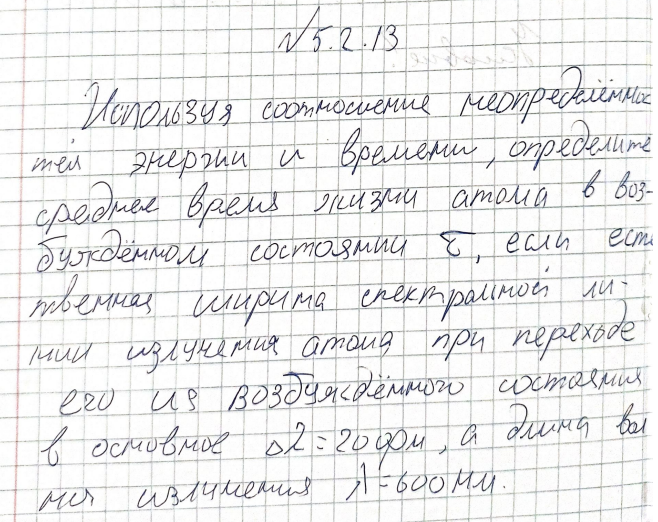 №5.2.13
Используя соотношение неопределённос
тей энергии и времени, определите
среднее время жизни атома в воз-
буждённом состоянии τ, если есте
твенная ширина спектральной ли-
нии излучения атома при переходе
его из возбуждённого состояния
в основное Δλ=20фм, а длина вол
ны излучения λ=600нм.